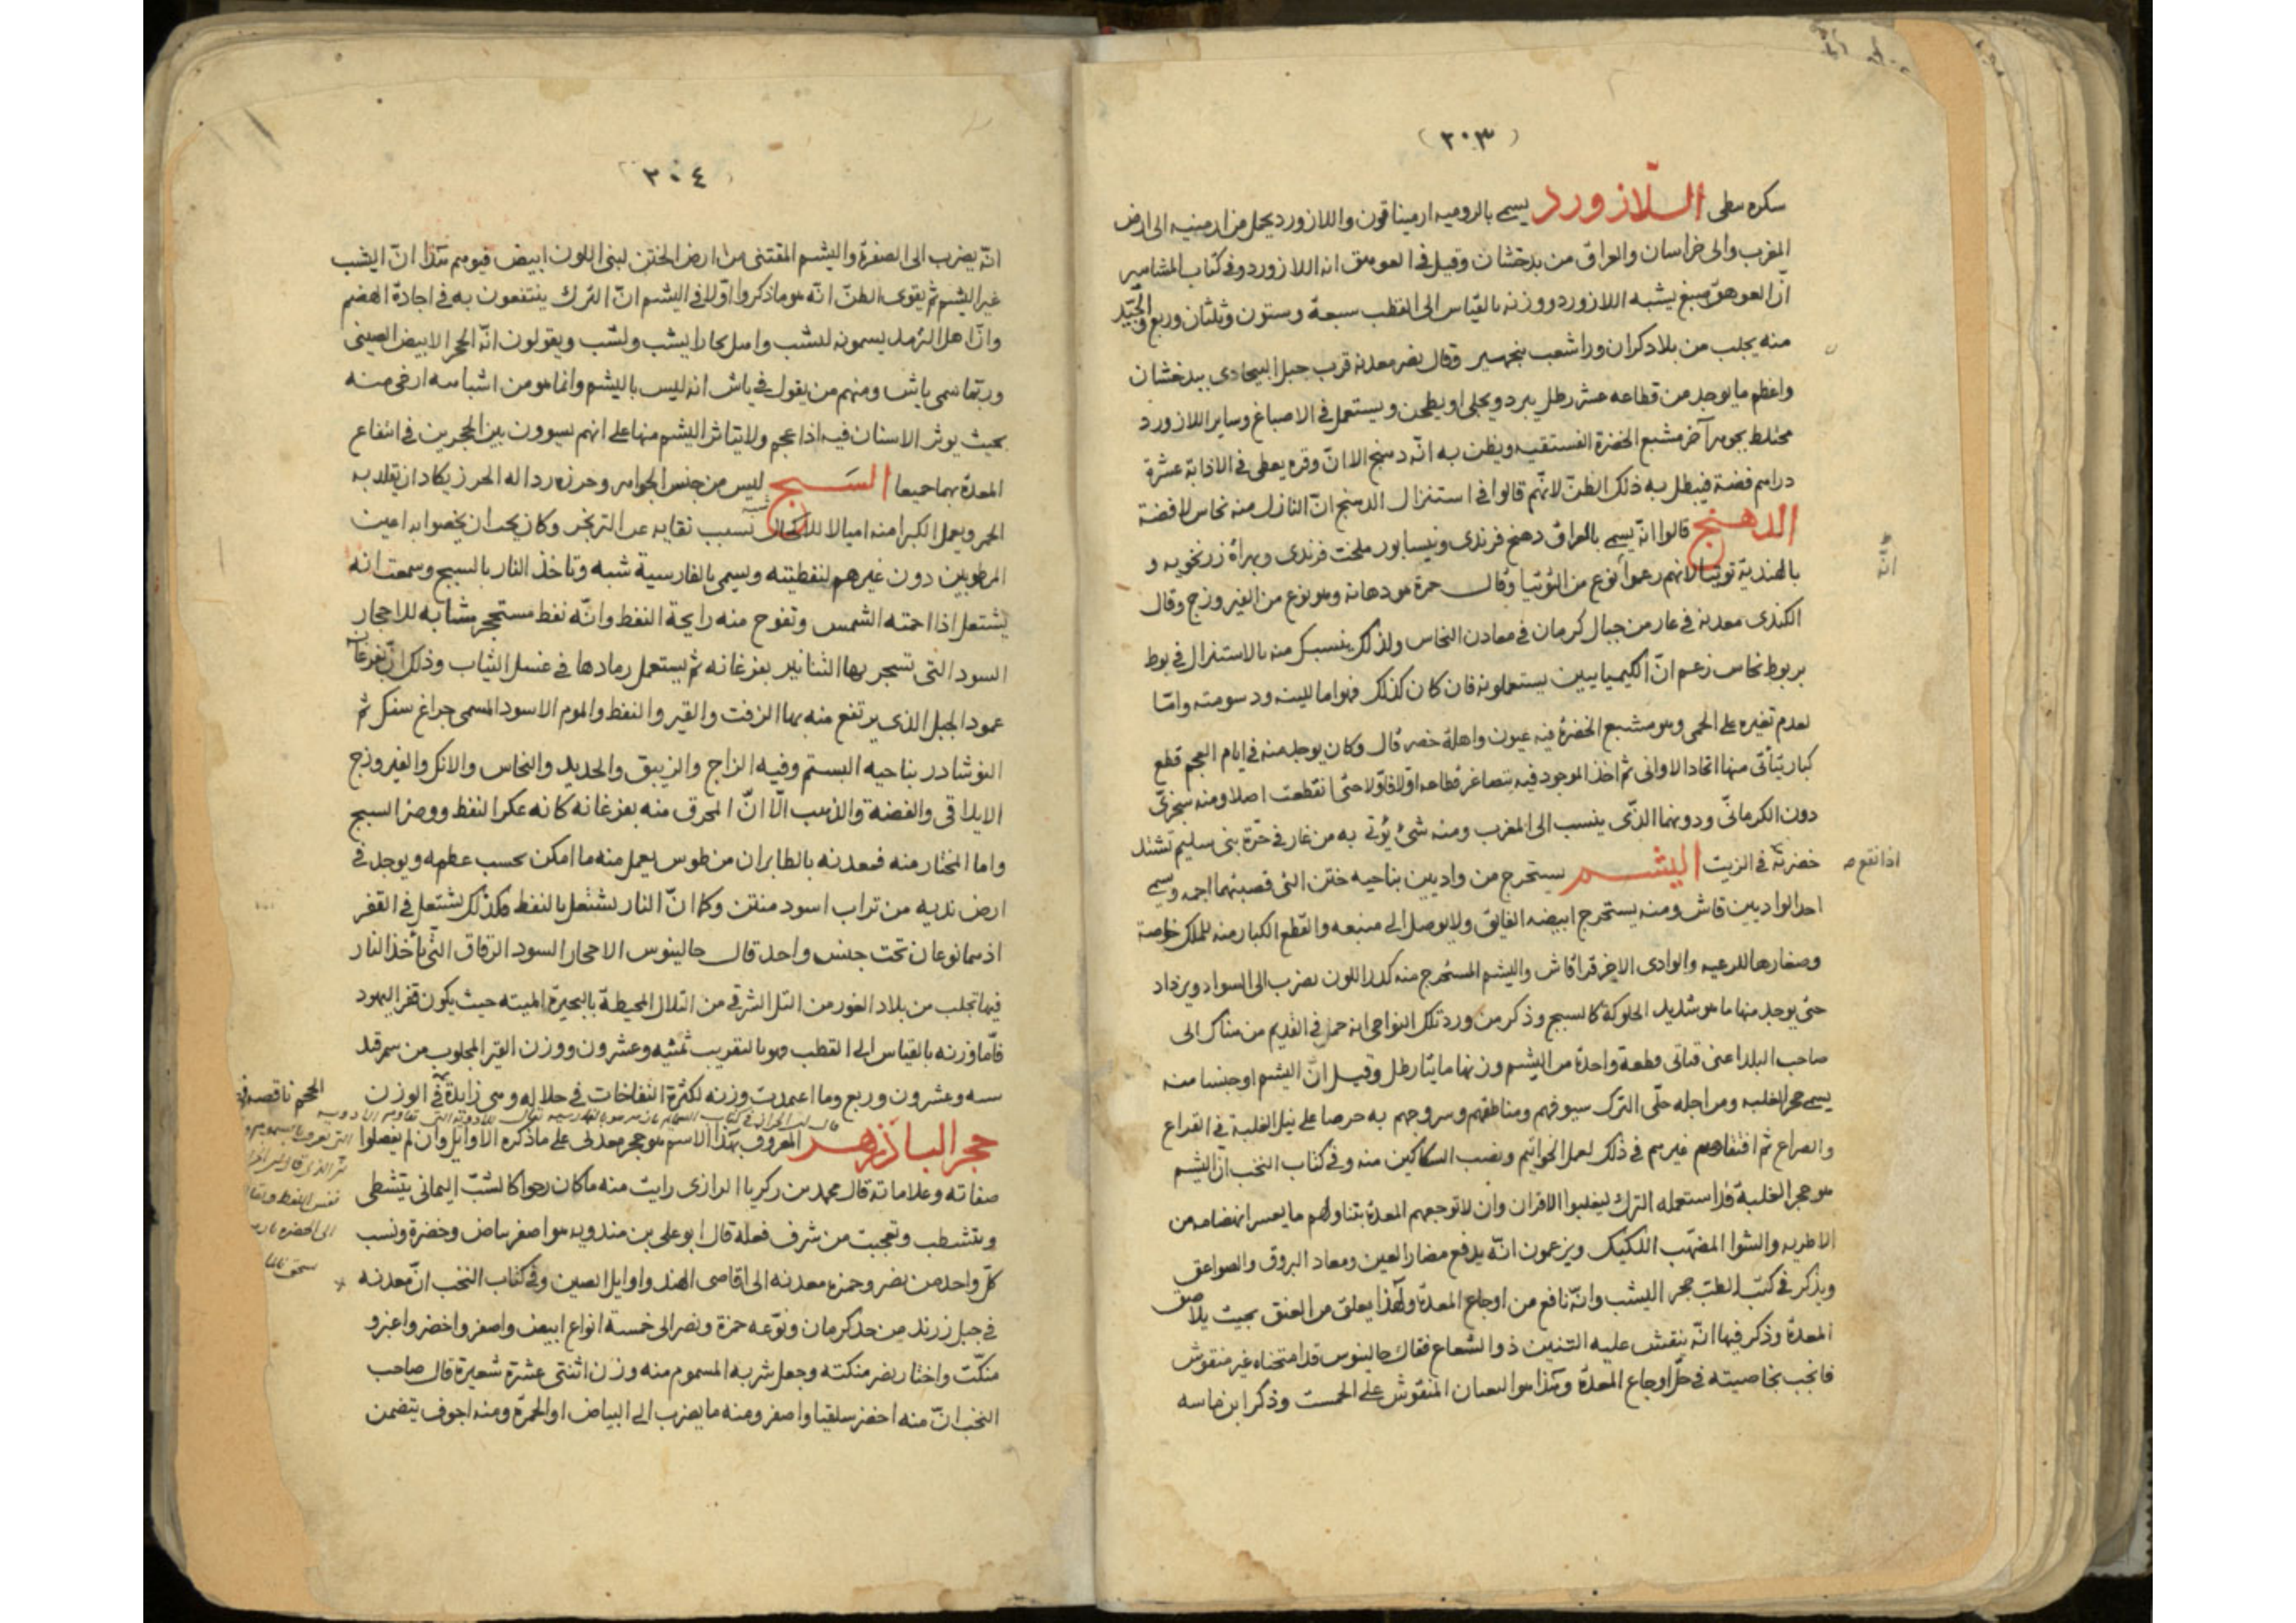 (٢٠٣)
سكره معلى اللازورد يسمى بالرومية ارميناقون واللازورد يحمل من ارمينيه الى ارض
المغرب والى خراسان والعراق من بدخشان وقيل فى العوهق انه اللازورد وفى كتاب المشاهير
انّ العوهق صبغ يشبه اللازورد ووزنه بالقياس الى القطب سبعة وستون وثلثان وربع والجيّد
منه يجلب من بلاد كران ورا شعب بنجهير وقال نصر معدنه قرب جبل البيجادى ببدخشان
واعظم ما يوجد من قطاعه عشر رطل يبرد ويجلى او يطحن ويستعمل فى الاصباغ وساير اللازورد
مختلط بجوهر آخر مشبع الخضرة الفستقيه ويظن به انّه دهنج الا انّ وقره يعطى فى الاذابة عشرة
دراهم فضة فيبطل به ذلك الظنّ لانّهم قالوا فى استنزال الدهنج انّ النازل منه نحاس لا فضة
الدهنج قالوا انّه يسمى بالعراق دهنج فرندى وبنيسابور ملخت فرندى وبهراة زرنحويه و
بالهندية توتيا لانهم زعموا نوع من التوتيا وقال حمزة هو دهانه وهو نوع من الفيروزج وقال
انّه
الكندى معدنه فى غار من جبال كرمان فى معادن النحاس ولذلك ينسبك منه بالاستنزال فى بوط
بر بوط نحاس زعم انّ الكيميايين يستعملونه فان كان كذلك فهو اما للينه ودسومته وامّا
لعدم تغيره على الحمى وهو مشبع الخضرة فيه عيون واهلة خضر قال وكان يوجد منه فى ايام العجم قطع
كبار يتأتّى منها اتخاذ الاوانى ثم اخذ الموجود فيه يتصاغر قطاعه اوّلا فاوّلا حتى انقطعت اصلا ومنه سجزىّ
دون الكرمانىّ ودونهما الذى ينسب الى المغرب ومنه شئ يؤتى به من غار فى حرّة بنى سليم تشتد
خضرته فى الزيت اليشم يستخرج من واديين بناحيه ختن التى قصبتها اجمه ويسمى
اذا نقع
احد الواديين قاش ومنه يستخرج ابيضه الفايق ولا يوصل الى منبعه والقطع الكبار منه للملك خاصة
وصغارها للرعيه والوادى الاخر قراقاش واليشم المستخرج منه كدر اللون يضرب الى السواد ويزداد
حتى يوجد منها ما هو شديد الحلوكة كالسبج وذكر من ورد تلك النواحى انه حمل فى القديم من هناك الى
صاحب البلد اعنى قتاى قطعة واحدة من اليشم وزنها مايتا رطل وقيل انّ اليشم او جنسا منه
يسمى حجر الغلبه ومن اجله حلّى الترك سيوفهم ومناطقهم وسروجهم به حرصا على نيل الغلبة فى القراع
والصراع ثم اقتفاهم غيرهم فى ذلك لعمل الخواتيم ونصب السكاكين منه وفى كتاب النخب انّ اليشم
هو حجر الغلبة فلذا استعمله الترك ليغلبوا الاقران وان لا توجعهم المعدة بتناولهم ما يعسر انهضامه من
الاطريه والشوا المضهّب اللكيك ويزعمون انّه يدفع مضار العين ومعاد البروق والصواعق
ويذكر فى كتب الطب حجر اليشب وانّه نافع من اوجاع المعدة ولهذا يعلق من العنق بحيث يلاصق
المعدة وذكر فيها انّه ينقش عليه التنين ذو الشعاع فقال جالينوس قد امتحناه غير منقوش
فانجب بخاصيته فى حلّ اوجاع المعدة وهكذا هو الثعبان المنقوش على الخمست وذكر ابن ماسه
٢٠٤
انّه يضرب الى الصفرة واليشم المقتنى من ارض الختن لبنى اللون ابيض فيوهم هذا انّ اليشب
غير اليشم ثم يقوى الظنّ انّه هو ما ذكروا اوّلا فى اليشم انّ الترك ينتفعون به فى اجادة الهضم
وانّ اهل الترمد يسمونه ليشب واهل بخارا يشب ولشب ويقولون انّه الحجر الابيض الصينى
وربّما سمى باش ومنهم من يقول فى باش انه ليس باليشم وانما هو من اشباهه ارخى منه
بحيث يوثر الاسنان فيه اذا عجم ولا يتاثر اليشم منها على انهم يسوون بين الحجرين فى انتفاع
المعدة بهما جميعا السبج ليس من جنس الجواهر وخرزه رذاله الخرز يكاد ان يقلد به
الحمر ويعمل الكبرا منه اميالا للاكحال بسبب نقايه عن التزنجر وكان يجب ان يخصوا به اعين
المرطوبين دون غيرهم لنفطيته ويسمى بالفارسية شبه وتاخذ النار بالسبج وسمعت انه
يشتعل اذا احمته الشمس وتفوح منه رايحة النفط وانّه نفط مستحجر مشابه للاحجار
السود التى تسجر بها التنانير بفرغانه ثم يستعمل رمادها فى غسل الثياب وذلك انّ بفرغانه
عمود الجبل الذى يرتفع منه بها الزفت والقير والنفط والموم الاسود المسمى چراغ سنك ثم
النوشادر بناحيه البستم وفيه الزاج والزيبق والحديد والنحاس والانك والفيروزج
الايلاقى والفضة والذهب الّا انّ المحرق منه بفرغانه كانه عكر النفط ووضر السبج
واما المختار منه فمعدنه بالطابران من طوس يعمل منه ما امكن بحسب عظمه ويوجد فى
ارض نديه من تراب اسود منتن وكما انّ النار تشتعل بالنفط وكذلك تشتعل فى القفر
اذ هما نوعان تحت جنس واحد قال جالينوس الاحجار السود الرقاق التى تأخذ النار
فيها تجلب من بلاد الغور من التل الشرقى من التلال المحيطة بالبحيرة الميته حيث يكون قفر اليهود
فامّا وزنه بالقياس الى القطب فهو بالتقريب ثمنيه وعشرون ووزن القير المجلوب من سمرقند
سبه وعشرون وربع وما اعمدت وزنه لكثرة النفاخات فى خلاله وهى زايدة فى الوزن
الحجم ناقصه
حجر الباذزهر المعروف بهذا الاسم هو حجر معدنى على ما ذكره الاوايل وان لم يفصلوا
صفاته وعلاماته قال محمد بن زكريا الرازى رايت منه ما كان رخوا كالشب اليمانى يتشظى
ويتشطب وتعجبت من شرف فعله قال ابو على بن مندويه هو اصفر بياض وخضرة ونسب
كلّ واحد من نصر وحمزه معدنه الى اقاصى الهند واوايل الصين وفى كتاب النخب انّ معدنه
فى جبل زرند من حد كرمان ونوّعه حمزة ونصر الى خمسة انواع ابيض واصفر واخضر واغبر و
منكّت واختار نصر منكته وجعل شربه المسموم منه وزن اثنتى عشرة شعيرة قال صاحب
النخب انّ منه اخضر سلقيا واصفر ومنه ما يضرب الى البياض او الحمرة ومنه اجوف يتضمن